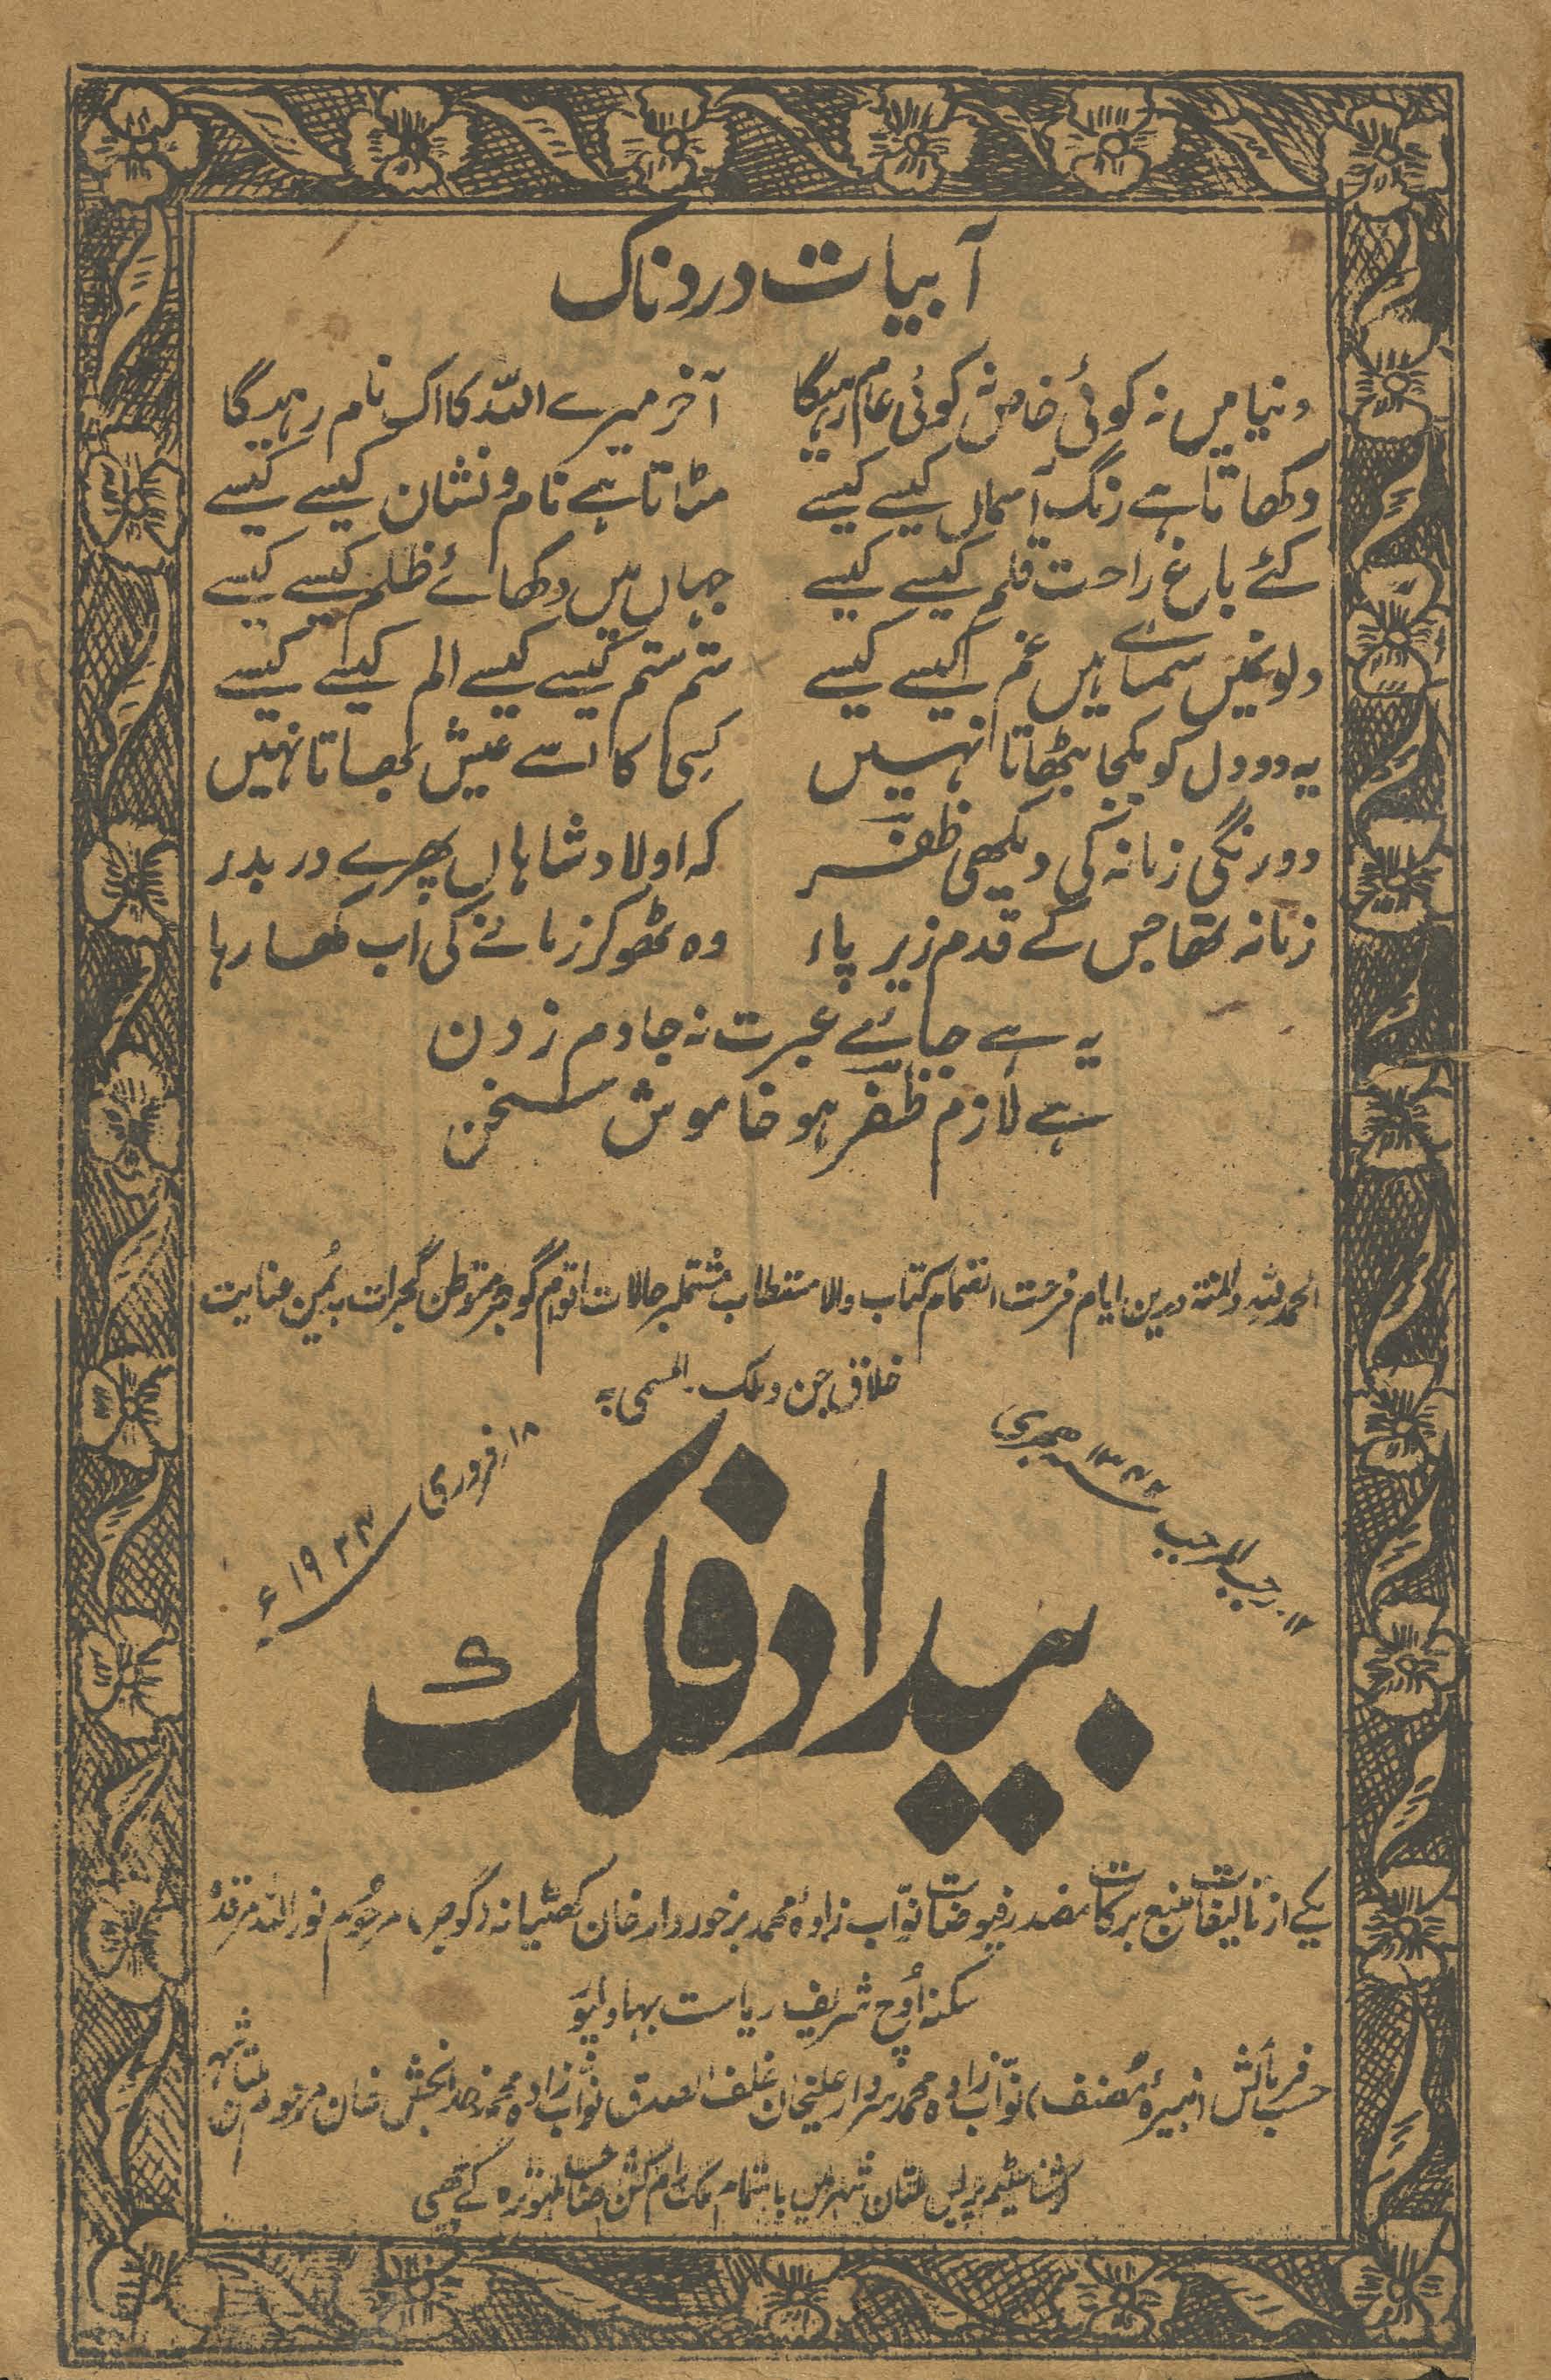 آبیات دردناک
دنیا میں نہ کوئی خاص نہ کوئی عام رہیگا آخر میرے اللہ کا اک نام رہیگا
دکھاتا ہے رنگ آسماں کیسے کیسے مٹاتا ہے نام و نشان کیسے کیسے
کئے باغ راحت قلم کیسے کیسے جہاں میں دکھائے ظلم کیسے کیسے
دلونمیں سمائے ہیں غم کیسے کیسے ستم ستم کیسے کیسے الم کیسے کیسے
یہ دو دل کو یکجا بٹھاتا نہیں کسی کا اسے عیش بھاتا نہیں
دو رنگی زمانہ کی دیکھی ظفر کہ اولاد شاہاں پھرے در بدر
زمانہ تھا جس کے قدم زیر پاء وہ ٹھوکر زمانے کی اب کھا رہا
یہ ہے جائے عبرت نہ جا دم زدن
ہے لازم ظفر ہو خاموش سخن
الحمد للہ والمنۃ درین ایام فرحت کتاب والا مستطاب مشتملبر حالات اقوام گوجر متوطن گجرات بہ یُمن عنایت
خلاق جن و ملک۔ المسمی بہ
۱۲۔ رجب المرجب ۱۳۴۲ ہجری
۱۸ فروری ۱۹۲۴ء
بیداد فلک
یکے از تالیفات منبع برکات مصدر فیوضات نوّاب زادہ محمد برخوردار خان کھٹانہ (گوجر) مرحُوم نور اللہ مرقدہٗ
سکنہ اُوچ شریف ریاست بہاولپور
حسب فرمائش (نبیرۂ مُصنف) نوّاب زادہ محمد سردار علیخان خلف الصدق نوّاب زادہ محمد خدابخش خان مرحوم ملتان شہر
سٹیم پریس ملتان شہر میں باہتمام رام کشن صاحب کے چھپی